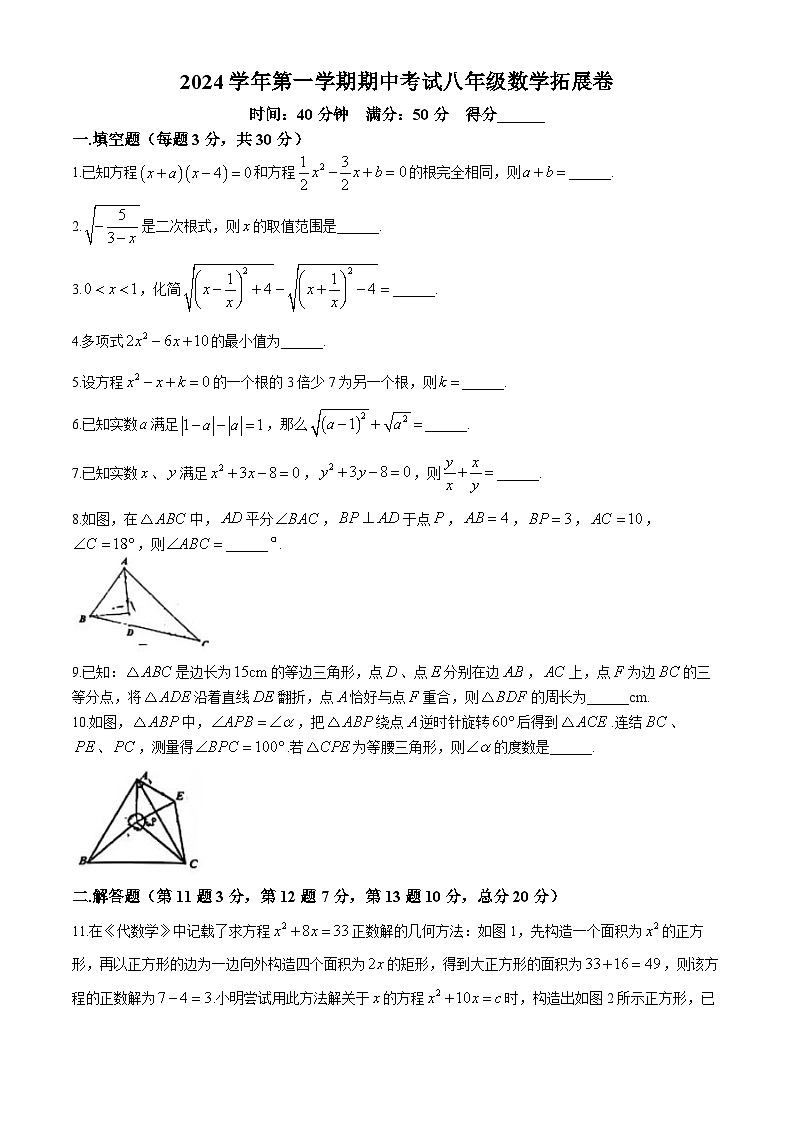 2024学年第一学期期中考试八年级数学拓展卷
时间：40分钟 满分：50分 得分______
一.填空题（每题3分，共30分）
1.已知方程(x+a)(x−4)=0和方程\frac{1}{2}x^2−\frac{3}{2}x+b=0的根完全相同，则a+b=______.
2.\sqrt{−\frac{5}{3−x}}是二次根式，则x的取值范围是______.
3.0<x<1，化简\sqrt{\left(x−\frac{1}{x}\right)^2+4}−\sqrt{\left(x+\frac{1}{x}\right)^2−4}=______.
4.多项式2x^2−6x+10的最小值为______.
5.设方程x^2−x+k=0的一个根的3倍少7为另一个根，则k=______.
6.已知实数a满足|1−a|−|a|=1，那么\sqrt{(a−1)^2}+\sqrt{a^2}=______.
7.已知实数x、y满足x^2+3x−8=0，y^2+3y−8=0，则\frac{y}{x}+\frac{x}{y}=______.
8.如图，在△ABC中，AD平分∠BAC，BP⊥AD于点P，AB=4，BP=3，AC=10，
∠C=18°，则∠ABC=______°.
A
B
D
C
9.已知：△ABC是边长为15cm的等边三角形，点D、点E分别在边AB，AC上，点F为边BC的三
等分点，将△ADE沿着直线DE翻折，点A恰好与点F重合，则△BDF的周长为______cm.
10.如图，△ABP中，∠APB=∠α，把△ABP绕点A逆时针旋转60°后得到△ACE.连结BC、
PE、PC，测量得∠BPC=100°.若△CPE为等腰三角形，则∠α的度数是______.
A
E
P
B
C
二.解答题（第11题3分，第12题7分，第13题10分，总分20分）
11.在《代数学》中记载了求方程x^2+8x=33正数解的几何方法：如图1，先构造一个面积为x^2的正方
形，再以正方形的边为一边向外构造四个面积为2x的矩形，得到大正方形的面积为33+16=49，则该方
程的正数解为7−4=3.小明尝试用此方法解关于x的方程x^2+10x=c时，构造出如图2所示正方形，已